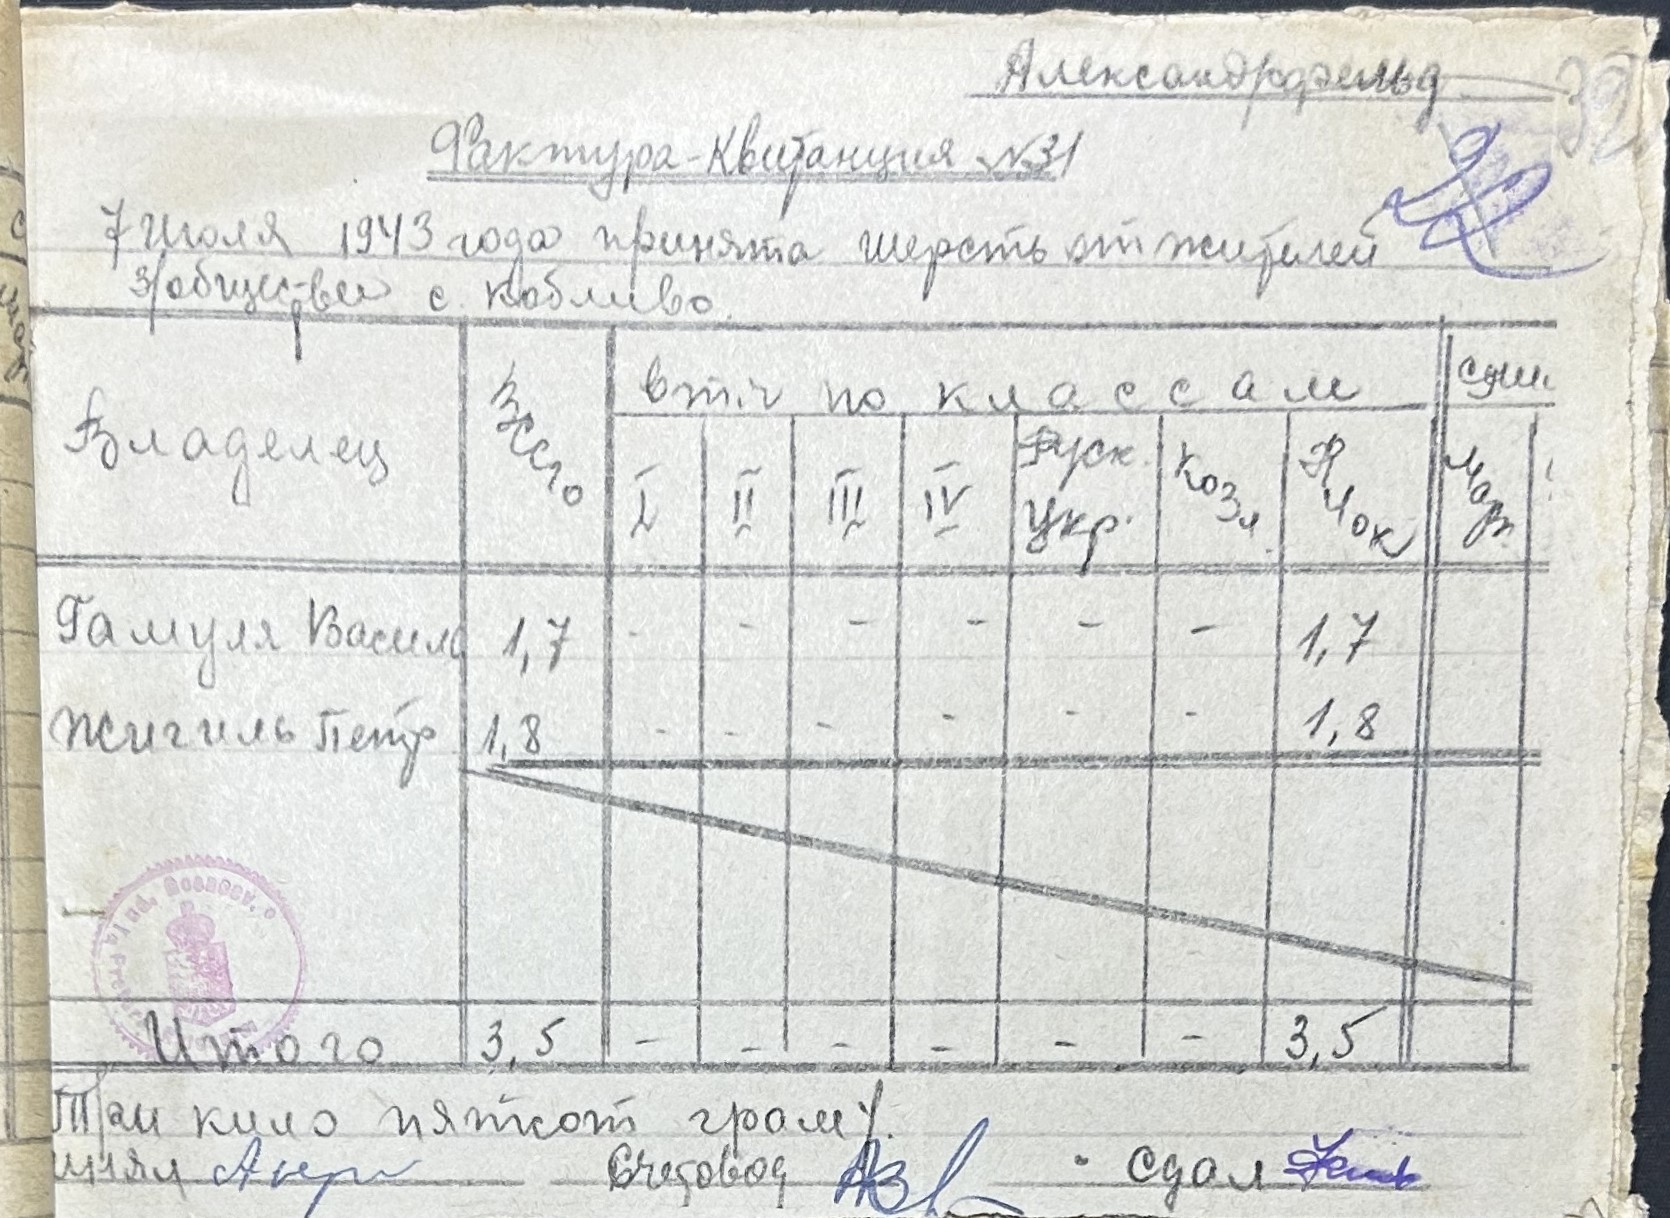 Александрфельд
Фактура-Квитанция №31
7 июля 1943 года принята шерсть от жителей
з/обществ с. Коблево.
Владелец Всего в т.ч по классам
I II III IV Руск. Укр. Козл.
Гамуля Васил 1,7 - - - - - - 1,7
Жигиль Петр 1,8 - - - - - - 1,8
Итого 3,5 - - - - - - 3,5
Три кило пятсот грам)
Счетовод Сдал